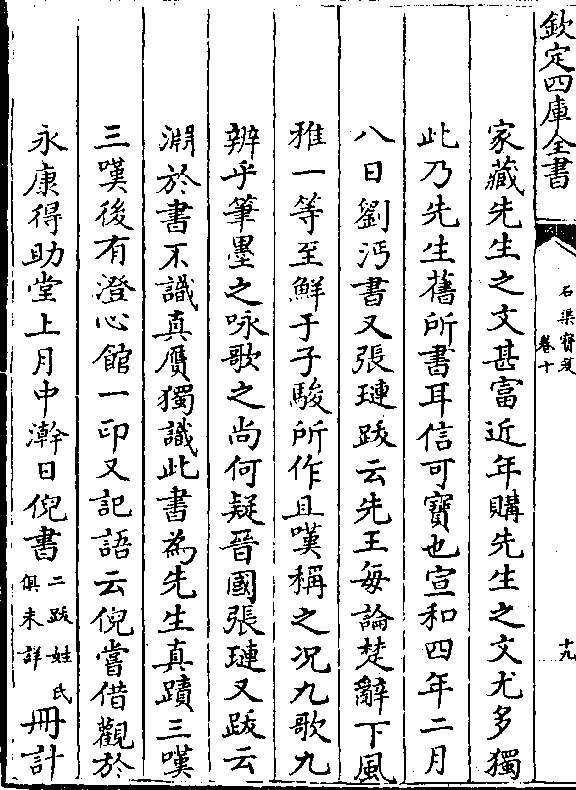 欽定四庫全書
石渠寳笈
卷十
十九
家藏先生之文甚富近年購先生之文尤多獨
此乃先生舊所書耳信可寳也宣和四年二月
八日劉沔書又張璉跋云先王每論楚辭下風
雅一等至鮮于子駿所作且嘆稱之况九歌九
辨乎筆墨之咏歌之尚何疑晉國張璉又跋云
淵於書不識真贋獨識此書為先生真蹟三嘆
三嘆後有澄心館一印又記語云倪嘗借觀於
永康得助堂上月中澣日倪書二跋姓氏俱未詳冊計